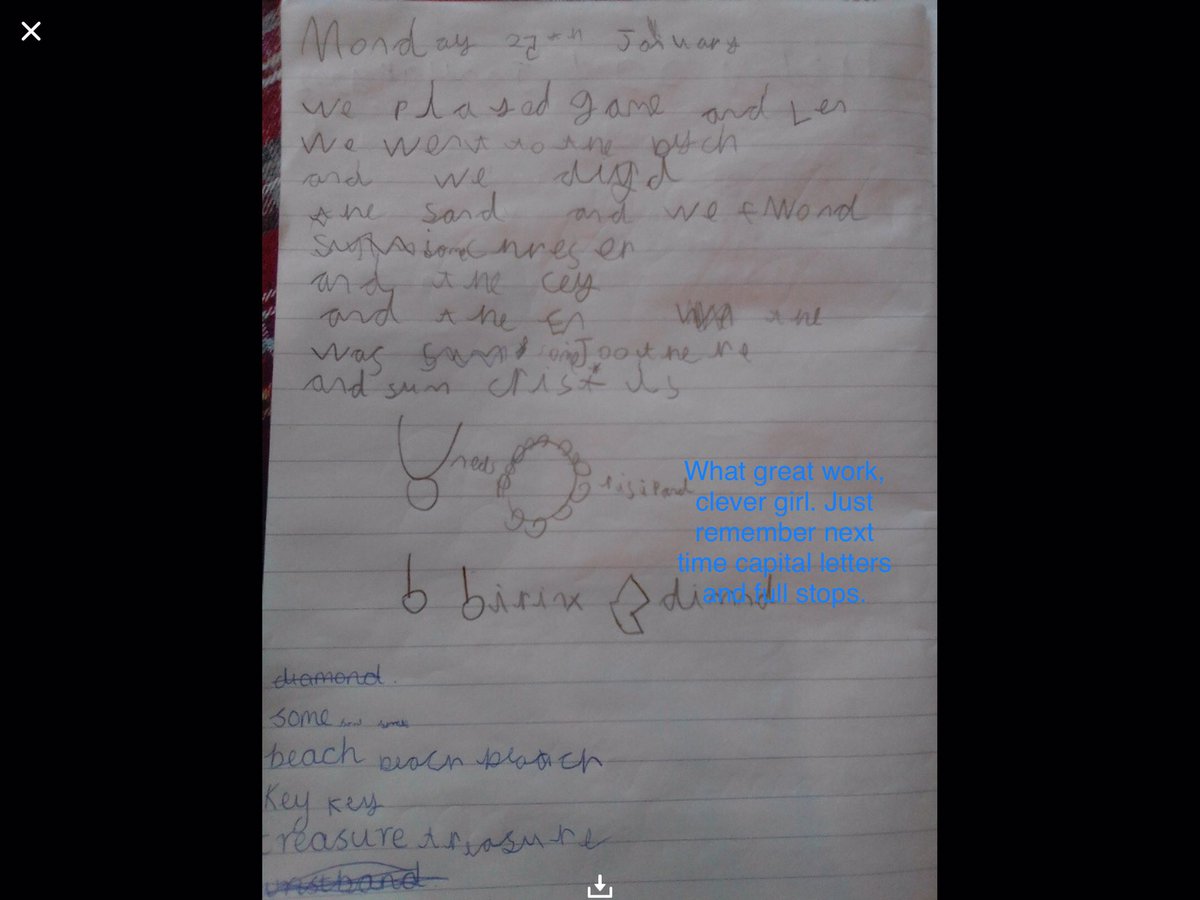 Monday 27th January
we plased game and Len
We went to the bych
and we digd
the sand and we fWond
some chreser
and the cey
and the En the
was some Joouthere
and sum cristils
necls
risipand
b birinx dimnd
What great work,
clever girl. Just
remember next
time capital letters
and full stops.
diamond.
some
beach beach beach
Key Key
treasure treasure
wristband